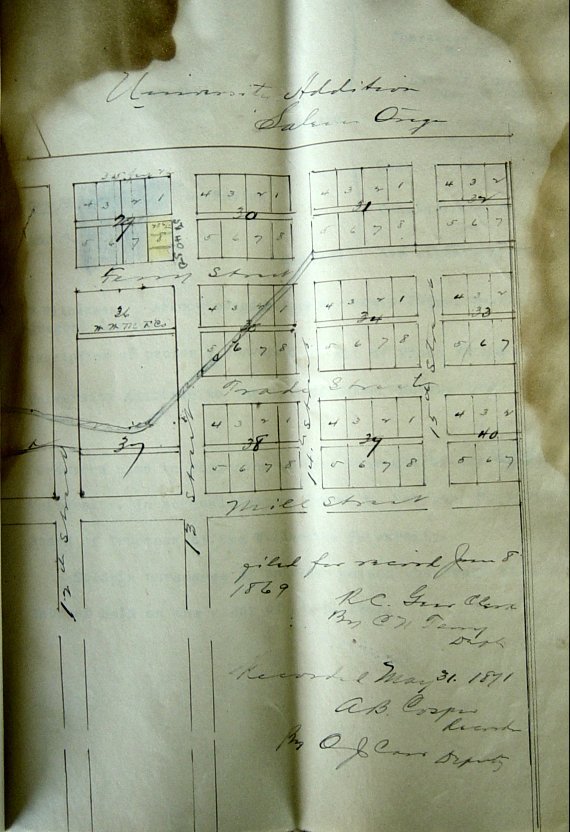 University Addition
Salem Oregn
4 3 2 1
29
5 6 7 8
4 3 2 1
30
5 6 7 8
4 3 2 1
31
5 6 7 8
4 3 2
32
5 6 7
Ferry Street
36
4 3 2 1
35
5 6 7 8
4 3 2 1
34
5 6 7 8
4 3 2
33
5 6 7
Trade Street
37
4 3 2 1
38
5 6 7 8
4 3 2 1
39
5 6 7 8
4 3 2
40
5 6 7
Mill Street
12th Street
13 Street
14th Street
15th Street
filed for record June 8
1869
R.C. Geer Clerk
By C N Terry
Dept
Recorded May 31. 1871
A.B. Cosper
Recorder
By O J Carr Deputy